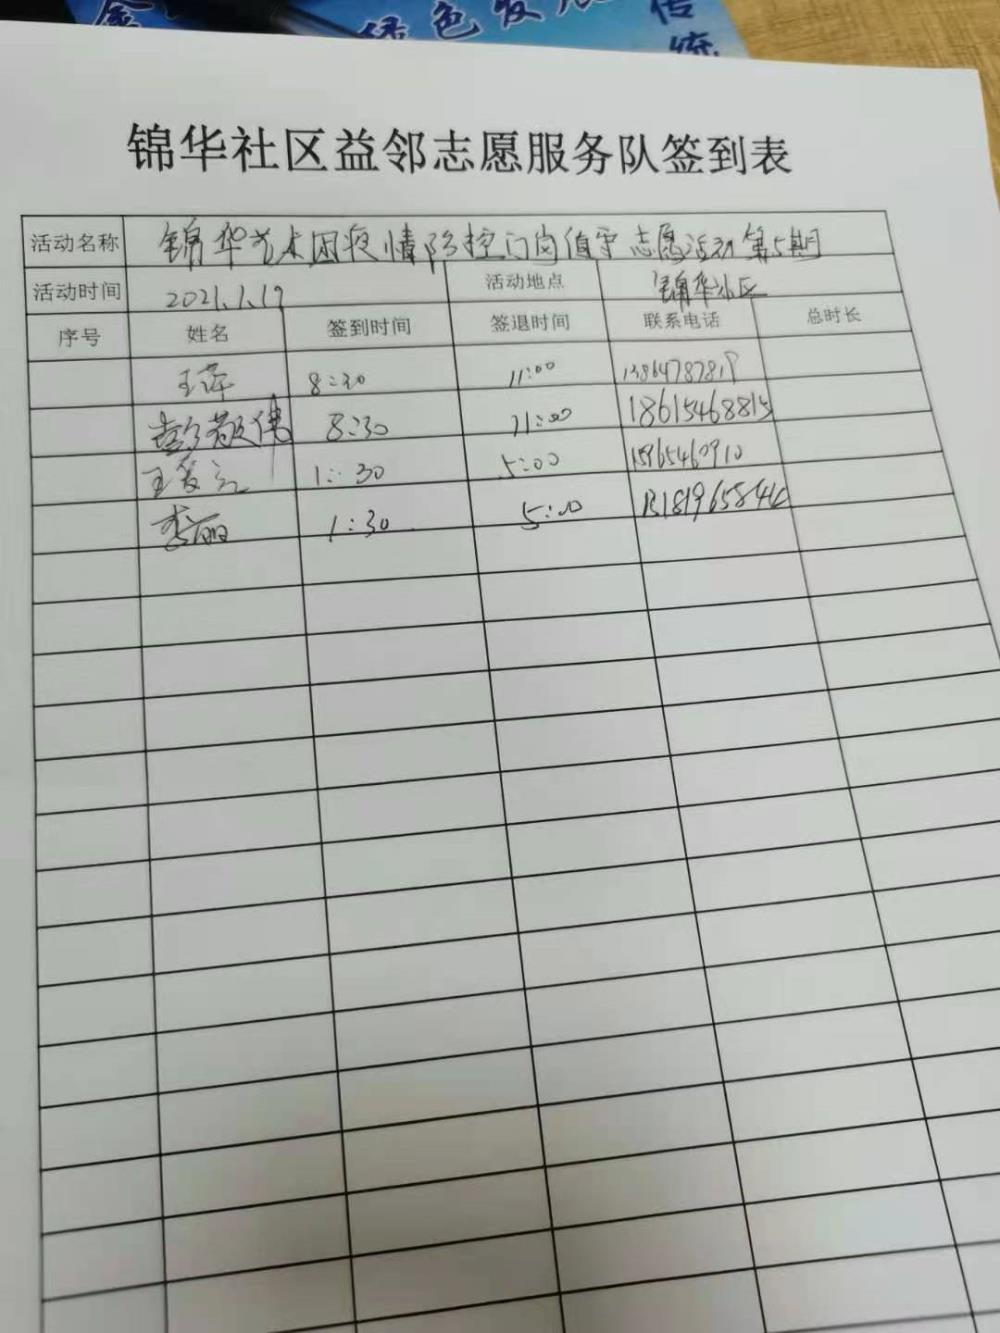 绿色发展
传统
锦华社区益邻志愿服务队签到表
活动名称 锦华艺术团疫情防控门岗值守志愿活动第5期
活动时间 2021.1.19 活动地点 锦华社区
序号 姓名 签到时间 签退时间 联系电话 总时长
王萍 8:30 11:00
彭敬伟 8:30 11:00 18615468815
1:30 5:00 15965460910
李丽 1:30 5:00